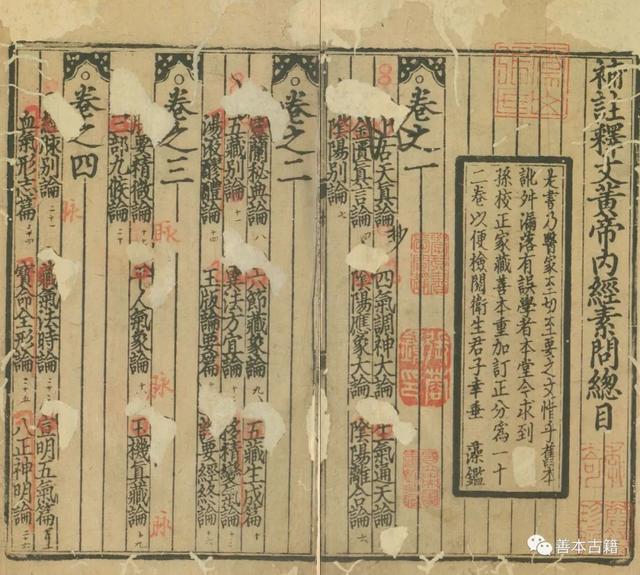 補註釋文黃帝內經素問總目
是書乃醫家至切至要之文惜乎舊本
訛舛漏落有誤學者本堂今求到
孫校正家藏善本重加訂正分爲一十
二卷以便檢閱衛生君子幸垂 藻鑑
卷之一
上古天真論 四氣調神大論 生氣通天論
金匱真言論 陰陽應象大論 陰陽離合論 六
陰陽別論 七
卷之二
靈蘭秘典論 八 六節藏象論 九 五藏生成篇 十
五藏別論 十一 異法方宜論 十二 移精變氣論 十三
湯液醪醴論 十四 玉版論要篇 要經終論
卷之三
要精微論 十七 人氣象論 十八 玉機真藏論 十九
三部九候論 二十
卷之四
經脉別論 二十一 藏氣法時論 二十二 宣明五氣篇
血氣形志篇 二十四 寶命全形論 二十五 八正神明論 二十六
脉
脉
脉
脉
善本古籍